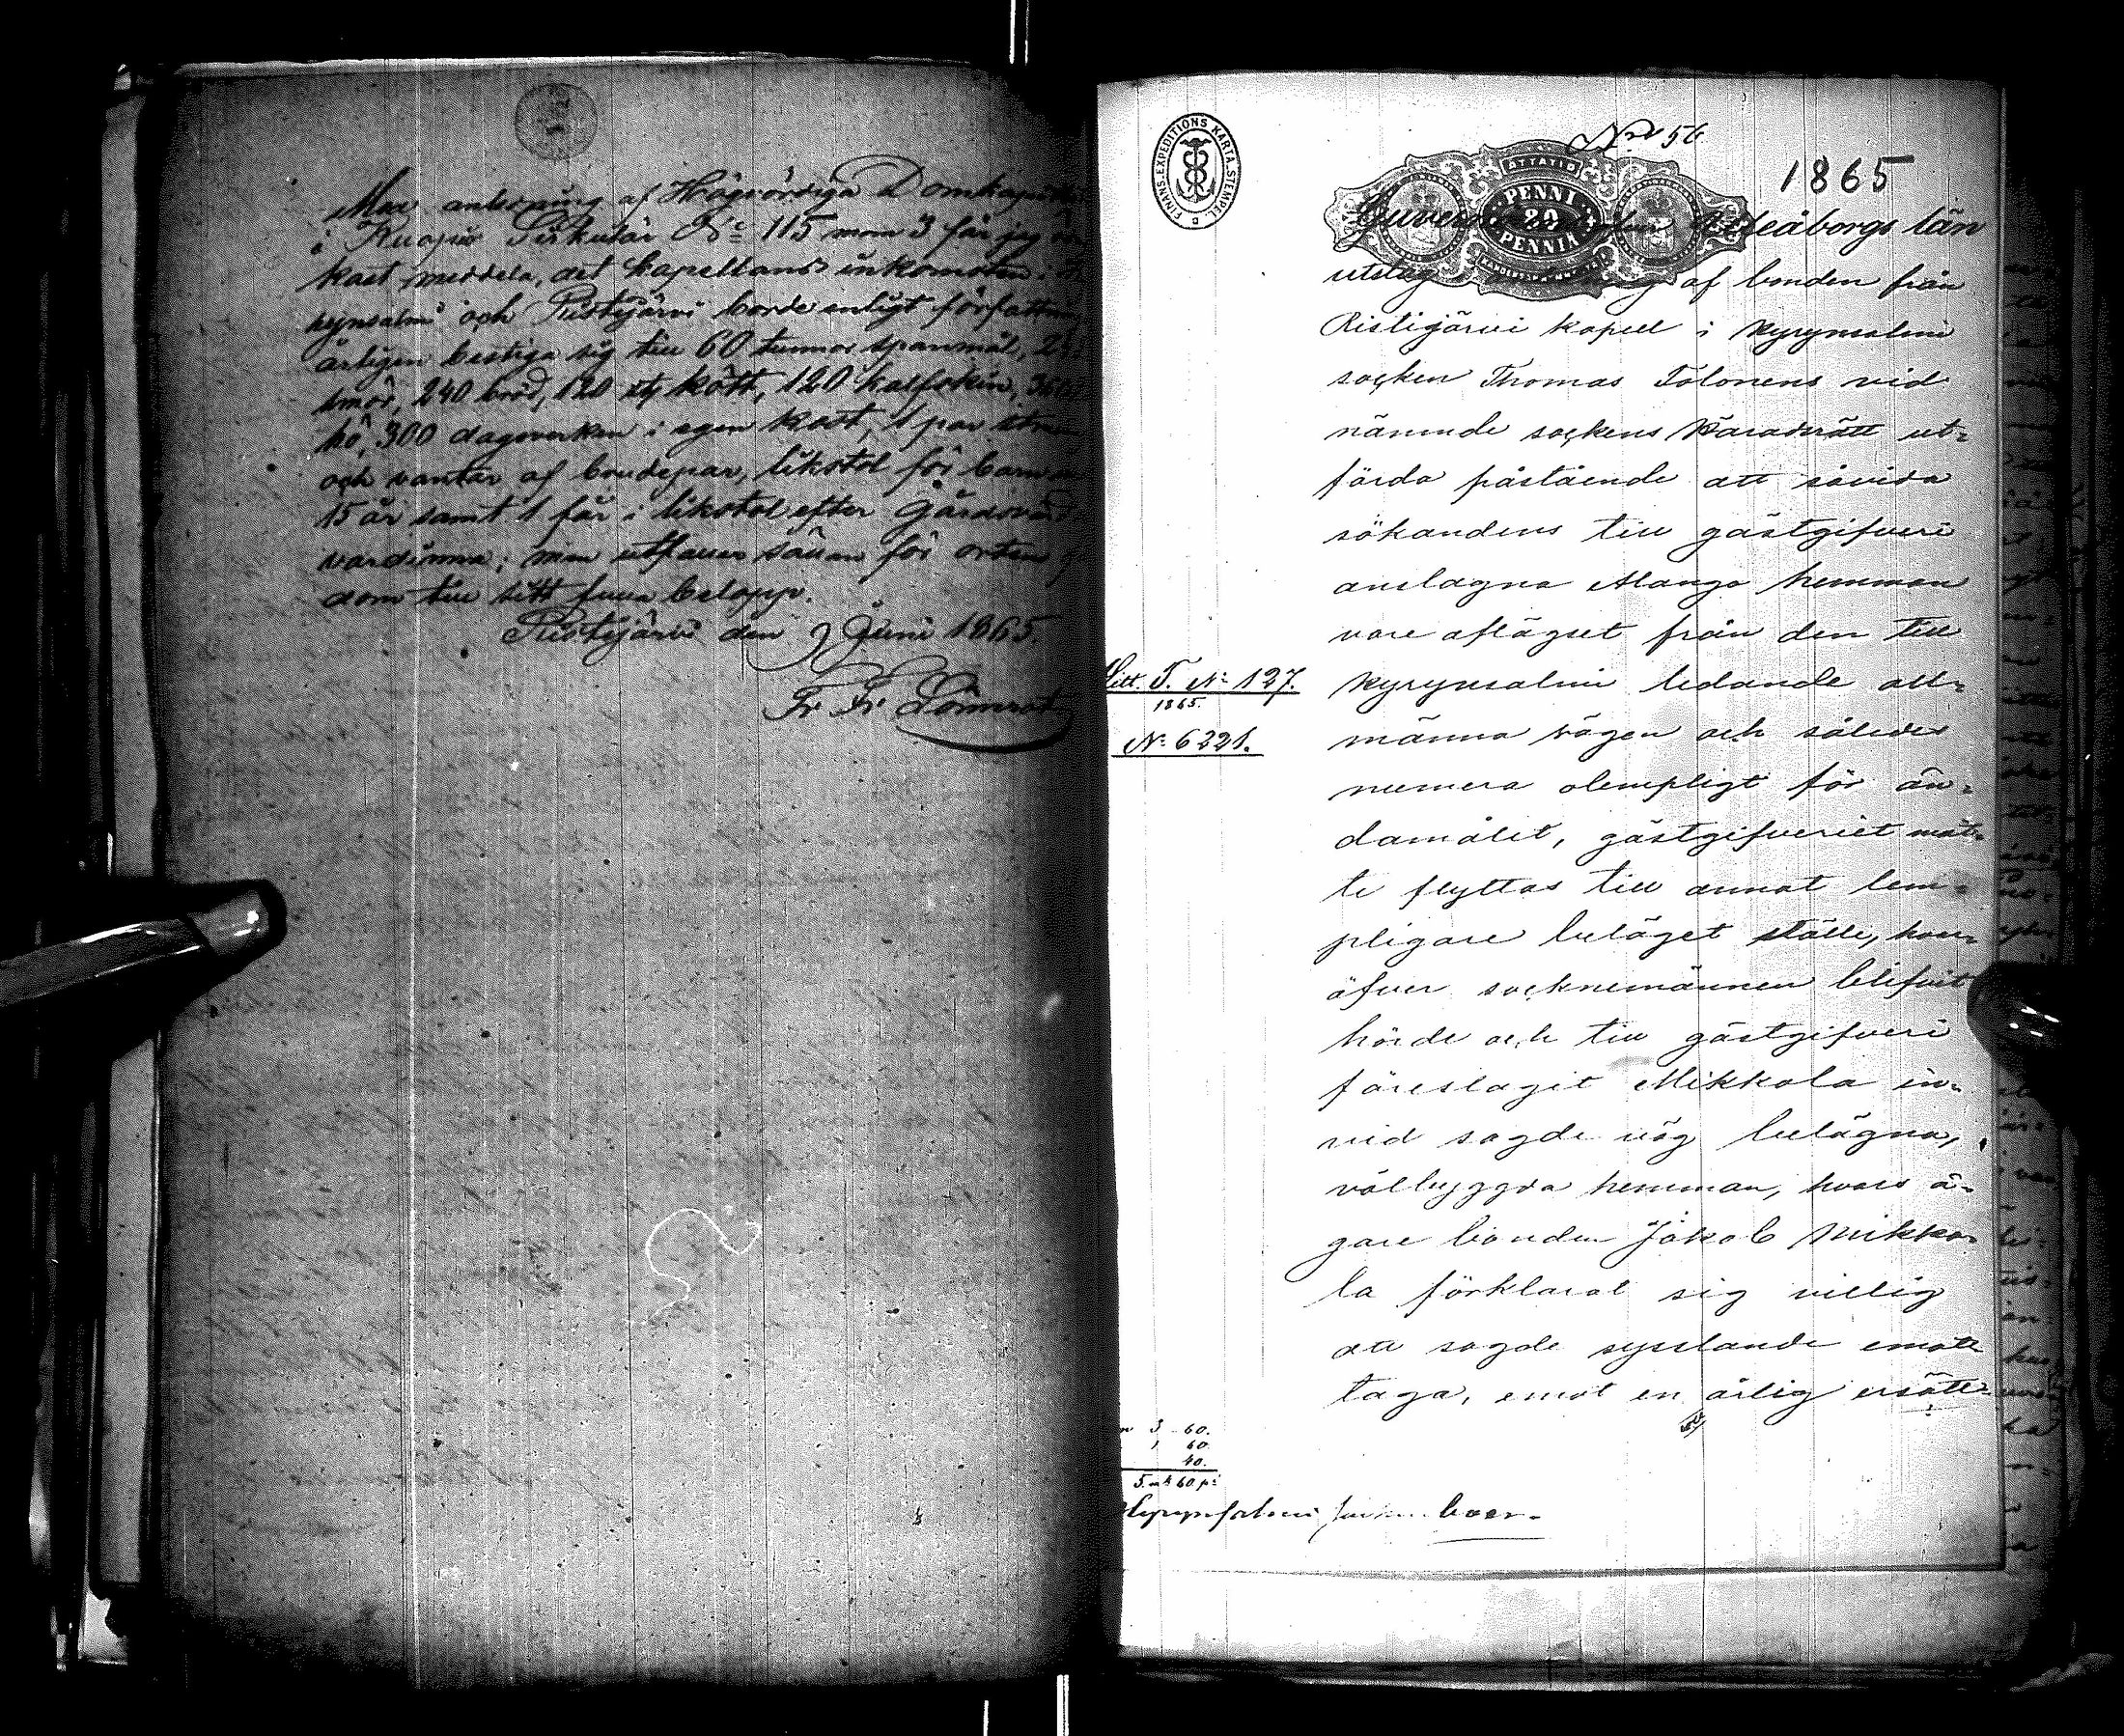 Med anledning af Högvördiga Domkapitlets
i Kuopio Cirkulär No 115 mom 3 får jag
kast meddela, att kapellans inkomsten i
hynsalmi och Ristijärvi borde enligt författning
årligen bestiga sig till 60 tunnor spanmål, 24
smör, 240 bröd, 120 kött, 120 kalfskin, 360
hö, 300 dagsverken i egen kost, 1 par
och vantar af brudepar, likstol för barn
15 år samt 1 får i likstol efter gårdsvärd
värdinna; men utfaller sällan för orten
dom till sitt fulla belopp.
Ristijärvi den 9 Juni 1865.
Fr. Fr. Lönnrot
FINANS.EXPEDITIONS KARTA.STEMPEL.
No 56
1865
ÅTTATIO
PENNI
80
PENNIÄ
Guvernörens Uleåborgs län
utslag af bonden från
Ristijärvi kapell i Kyrynsalmi
socken Thomas Tolonens vid
nämnde sockens Häradsrätt ut-
förda påstående att såvida
sökandens till gästgifveri
anslagna Alanga hemman
vore aflägset från den till
Kyrynsalmi ledande all-
männa vägen och således
numera olempligt för än-
damålet, gästgifveriet mät-
te flyttas till annat lem-
pligare beläget ställe, hvar-
öfver socknemännen blifvit
hörde och till gästgifveri
föreslagit Mikkola in-
vid sagde väg belägna,
välbyggda hemman, hvars ä-
gare bonden Jakob Mikko-
la förklarat sig villig
att sagde sysslande emot-
taga, emot en årlig ersätt-
Litt. T. No 127.
1865.
No 6221.
3 60.
1 60.
40.
5 mk 60 pi
Hyrynsalmi boer.